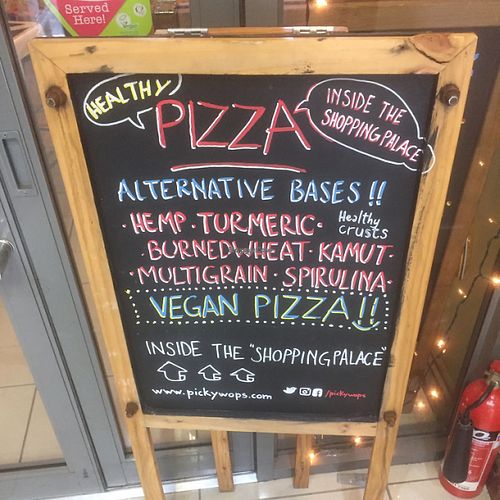 Served
Here!
HEALTHY
PIZZA
INSIDE THE
SHOPPING PALACE
ALTERNATIVE BASES!!
·HEMP·TURMERIC·
Healthy
crusts
BURNED WHEAT·KAMUT·
·MULTIGRAIN·SPIRULINA·
VEGAN PIZZA!!
INSIDE THE "SHOPPING PALACE"
www.pickywops.com
/pickywops